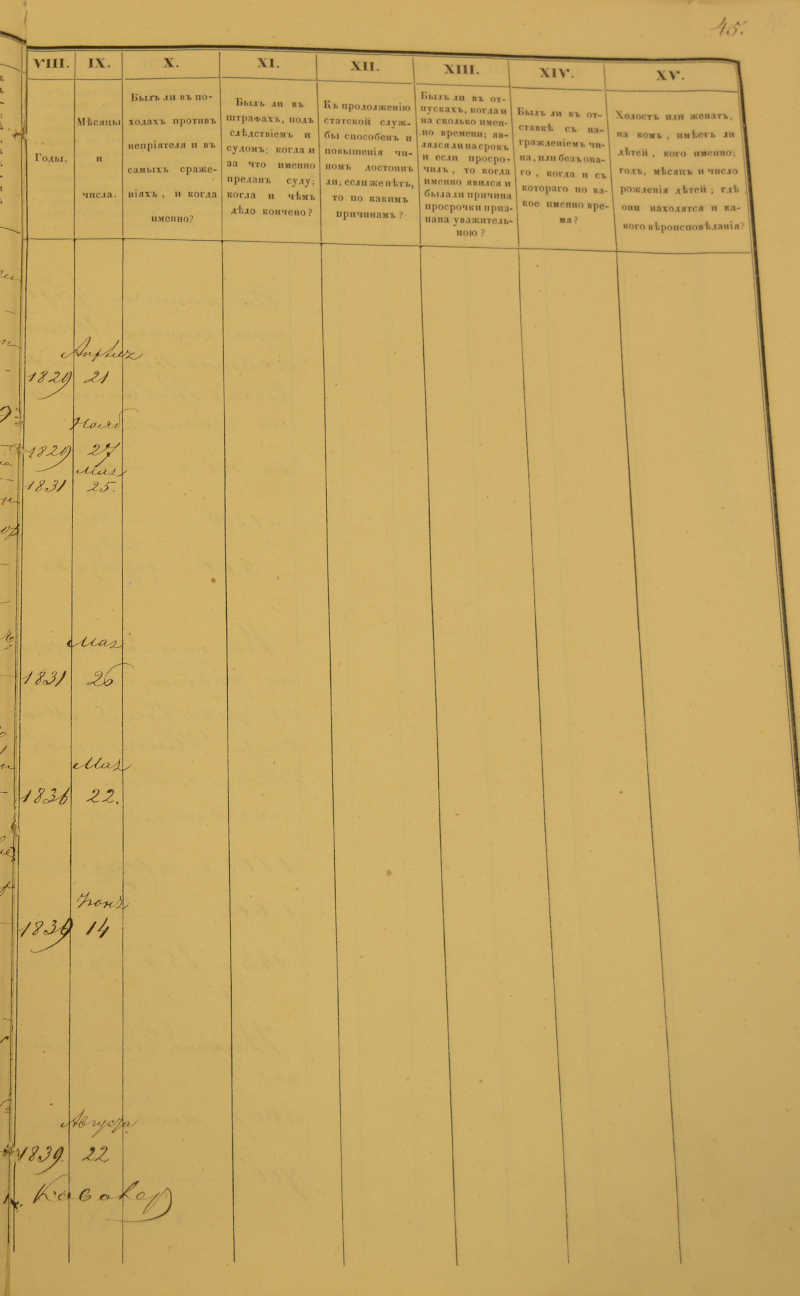 45.
VIII. IX. X. XI. XII. XIII. XIV. XV.
Годы.
Мѣсяцы
и
числа.
Былъ ли въ по-
ходахъ противъ
непріятеля и въ
самыхъ сраже-
ніяхъ , и когда
именно?
Былъ ли въ
штрафахъ, подъ
слѣдствіемъ и
судомъ; когда и
за что именно
преданъ суду;
когда и чѣмъ
дѣло кончено?
Къ продолженію
статской служ-
бы способенъ и
повышенія чи-
номъ достоинъ
ли; если же нѣтъ,
то по какимъ
причинамъ ?
Былъ ли въ от-
пускахъ, когда и
на сколько имен-
но времени; яв-
лялся ли на срокъ
и если просро-
чилъ , то когда
именно явился и
была ли причина
просрочки приз-
нана уважитель-
ною ?
Былъ ли въ от-
ставкѣ съ на-
гражденіемъ чи-
на, или безъ она-
го , когда и съ
котораго по ка-
кое именно вре-
ма?
Холостъ или женатъ,
на комъ , имѣетъ ли
дѣтей , кого именно;
годъ, мѣсяцъ и число
рожденія дѣтей ; гдѣ
они находятся и ка-
кого вѣроисповѣданія?
Апрѣля
1829 21
1829 27
Мая
1831 25.
Мая
1831 26
Мая
1836 22.
Іюня
1839 14
Августа
1839. 22